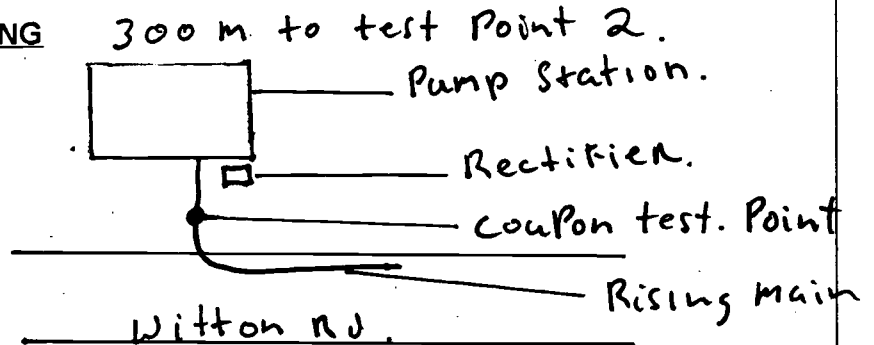 NG 300 m. to test Point 2.
Pump Station.
Rectifier.
Coupon test. Point
Rising main
Witton Rd.